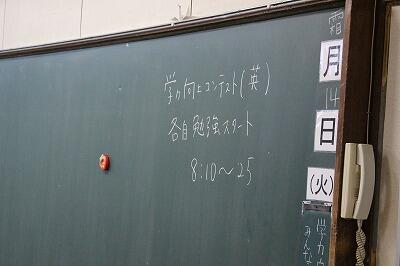 学力向上コンテスト(英)
各自勉強スタート
8:10～25
霜
月
14
日
(火)
学力
みんな